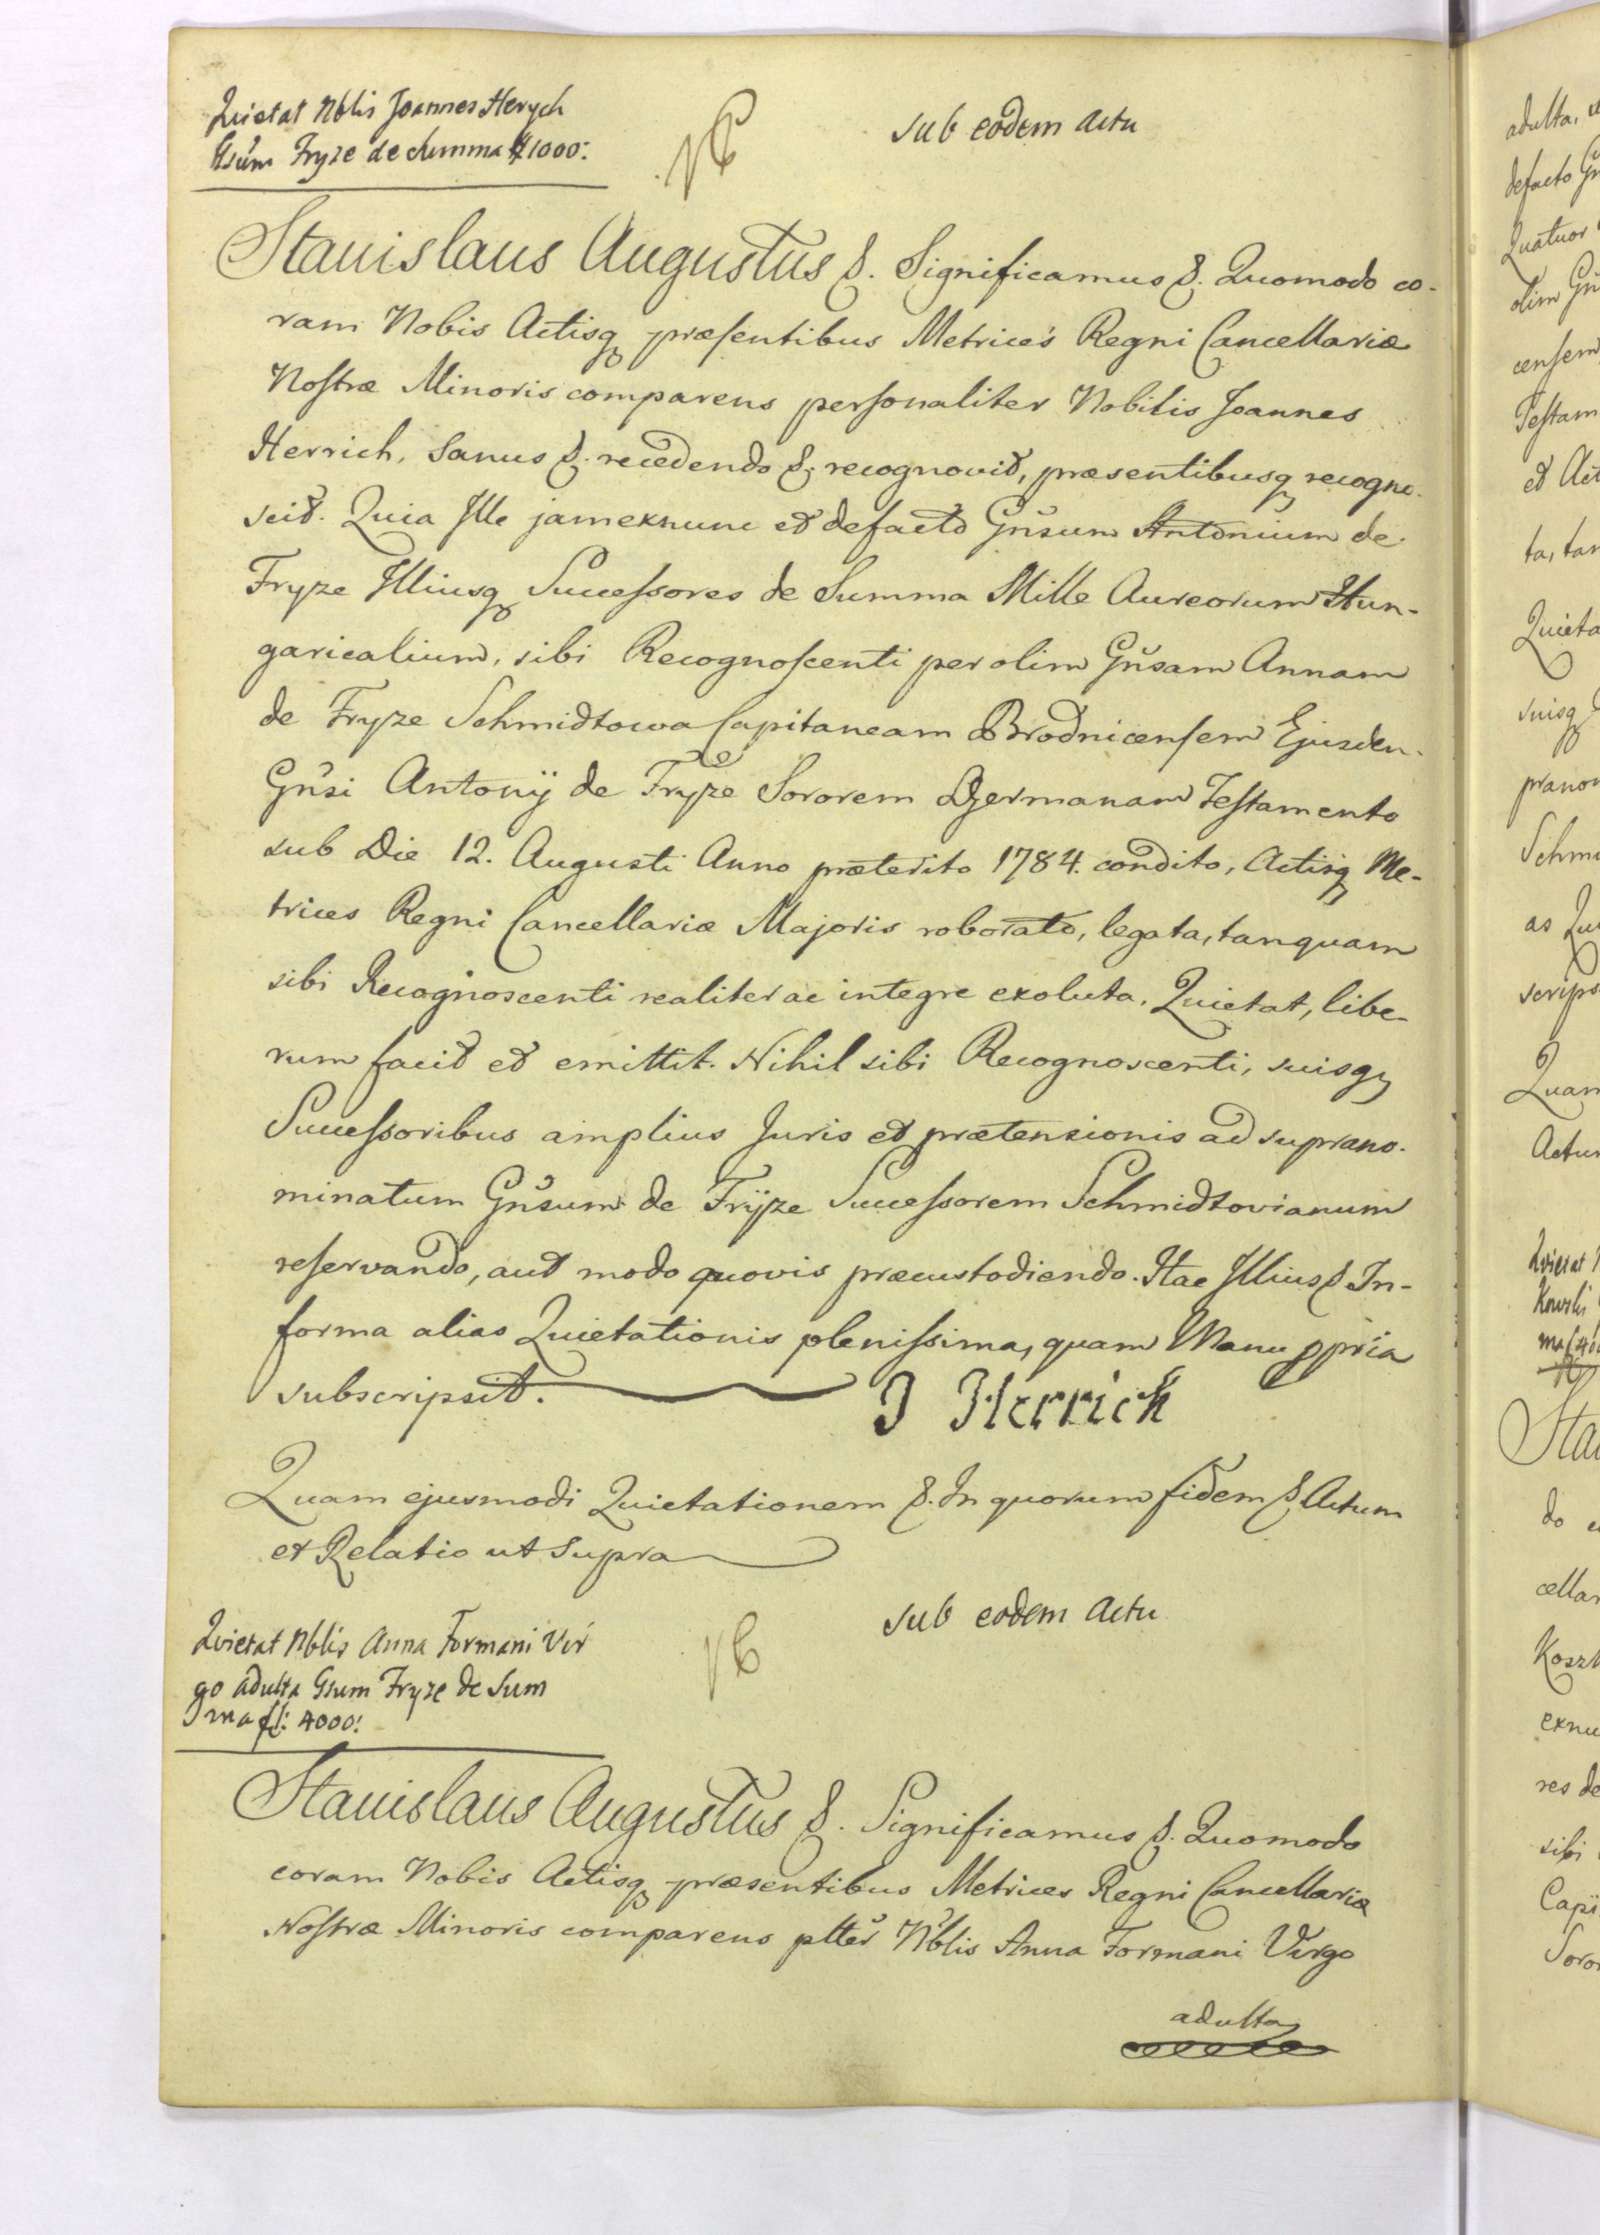 Quietat Nblis Joannes Herych
Gsum Fryze de summa # 1000:
sub eodem Actu
Stanislaus Augustus &. Significamus &. Quomodo co-
ram Nobis Actisq præsentibus Metrices Regni Cancellariæ
Nostræ Minoris comparens personaliter Nobilis Joannes
Herrich, Sanus &. recedendo &. recognovit, præsentibusq recogno-
scit. Quia Ille jam exnunc et defacto Gnsum Antonium de
Fryze Illiusq Successores de Summa Mille Aureorum Hun-
garicalium, sibi Recognoscenti per olim Gnsam Annam
de Fryze Schmidtowa Capitaneam Brodnicensem Ejusdem
Gnsi Antonij de Fryze Sororem Germanam Testamento
sub Die 12. Augusti Anno præterito 1784. condito, Actisq Me-
trices Regni Cancellariæ Majoris roborato, legata, tanquam
sibi Recognoscenti realiter ac integre exoluta, Quietat, libe-
rum facit et emittit. Nihil sibi Recognoscenti, suisq
Successoribus amplius Juris et prætensionis ad suprano-
minatum Gnsum de Fryze Successorem Schmidtovianum
reservando, aut modo quovis præcustodiendo. Hac Illius &. In-
forma alias Quietationis plenissima, quam Manu ppria
subscripsit.
J Herrich
Quam ejusmodi Quietationem &. In quorum fidem &. Actum
et Relatio ut supra
sub eodem Actu
Quietat Nblis Anna Formani Vir
go adulta Gsum Fryze de Sum
ma fl: 4000:
Stanislaus Augustus &. Significamus &. Quomodo
coram Nobis Actisq præsentibus Metrices Regni Cancellariæ
Nostræ Minoris comparens plter Nblis Anna Formani Virgo
adulta
adulta,
defacto
Quatuor
olim
censem
Testam
et Act
ta, tan
Quieta
suisq
prano
Schmi
as Qui
scrips
Quam
Actum
Quietat
Sta
do
cellar
exnu
res de
sibi
Capi
Soror